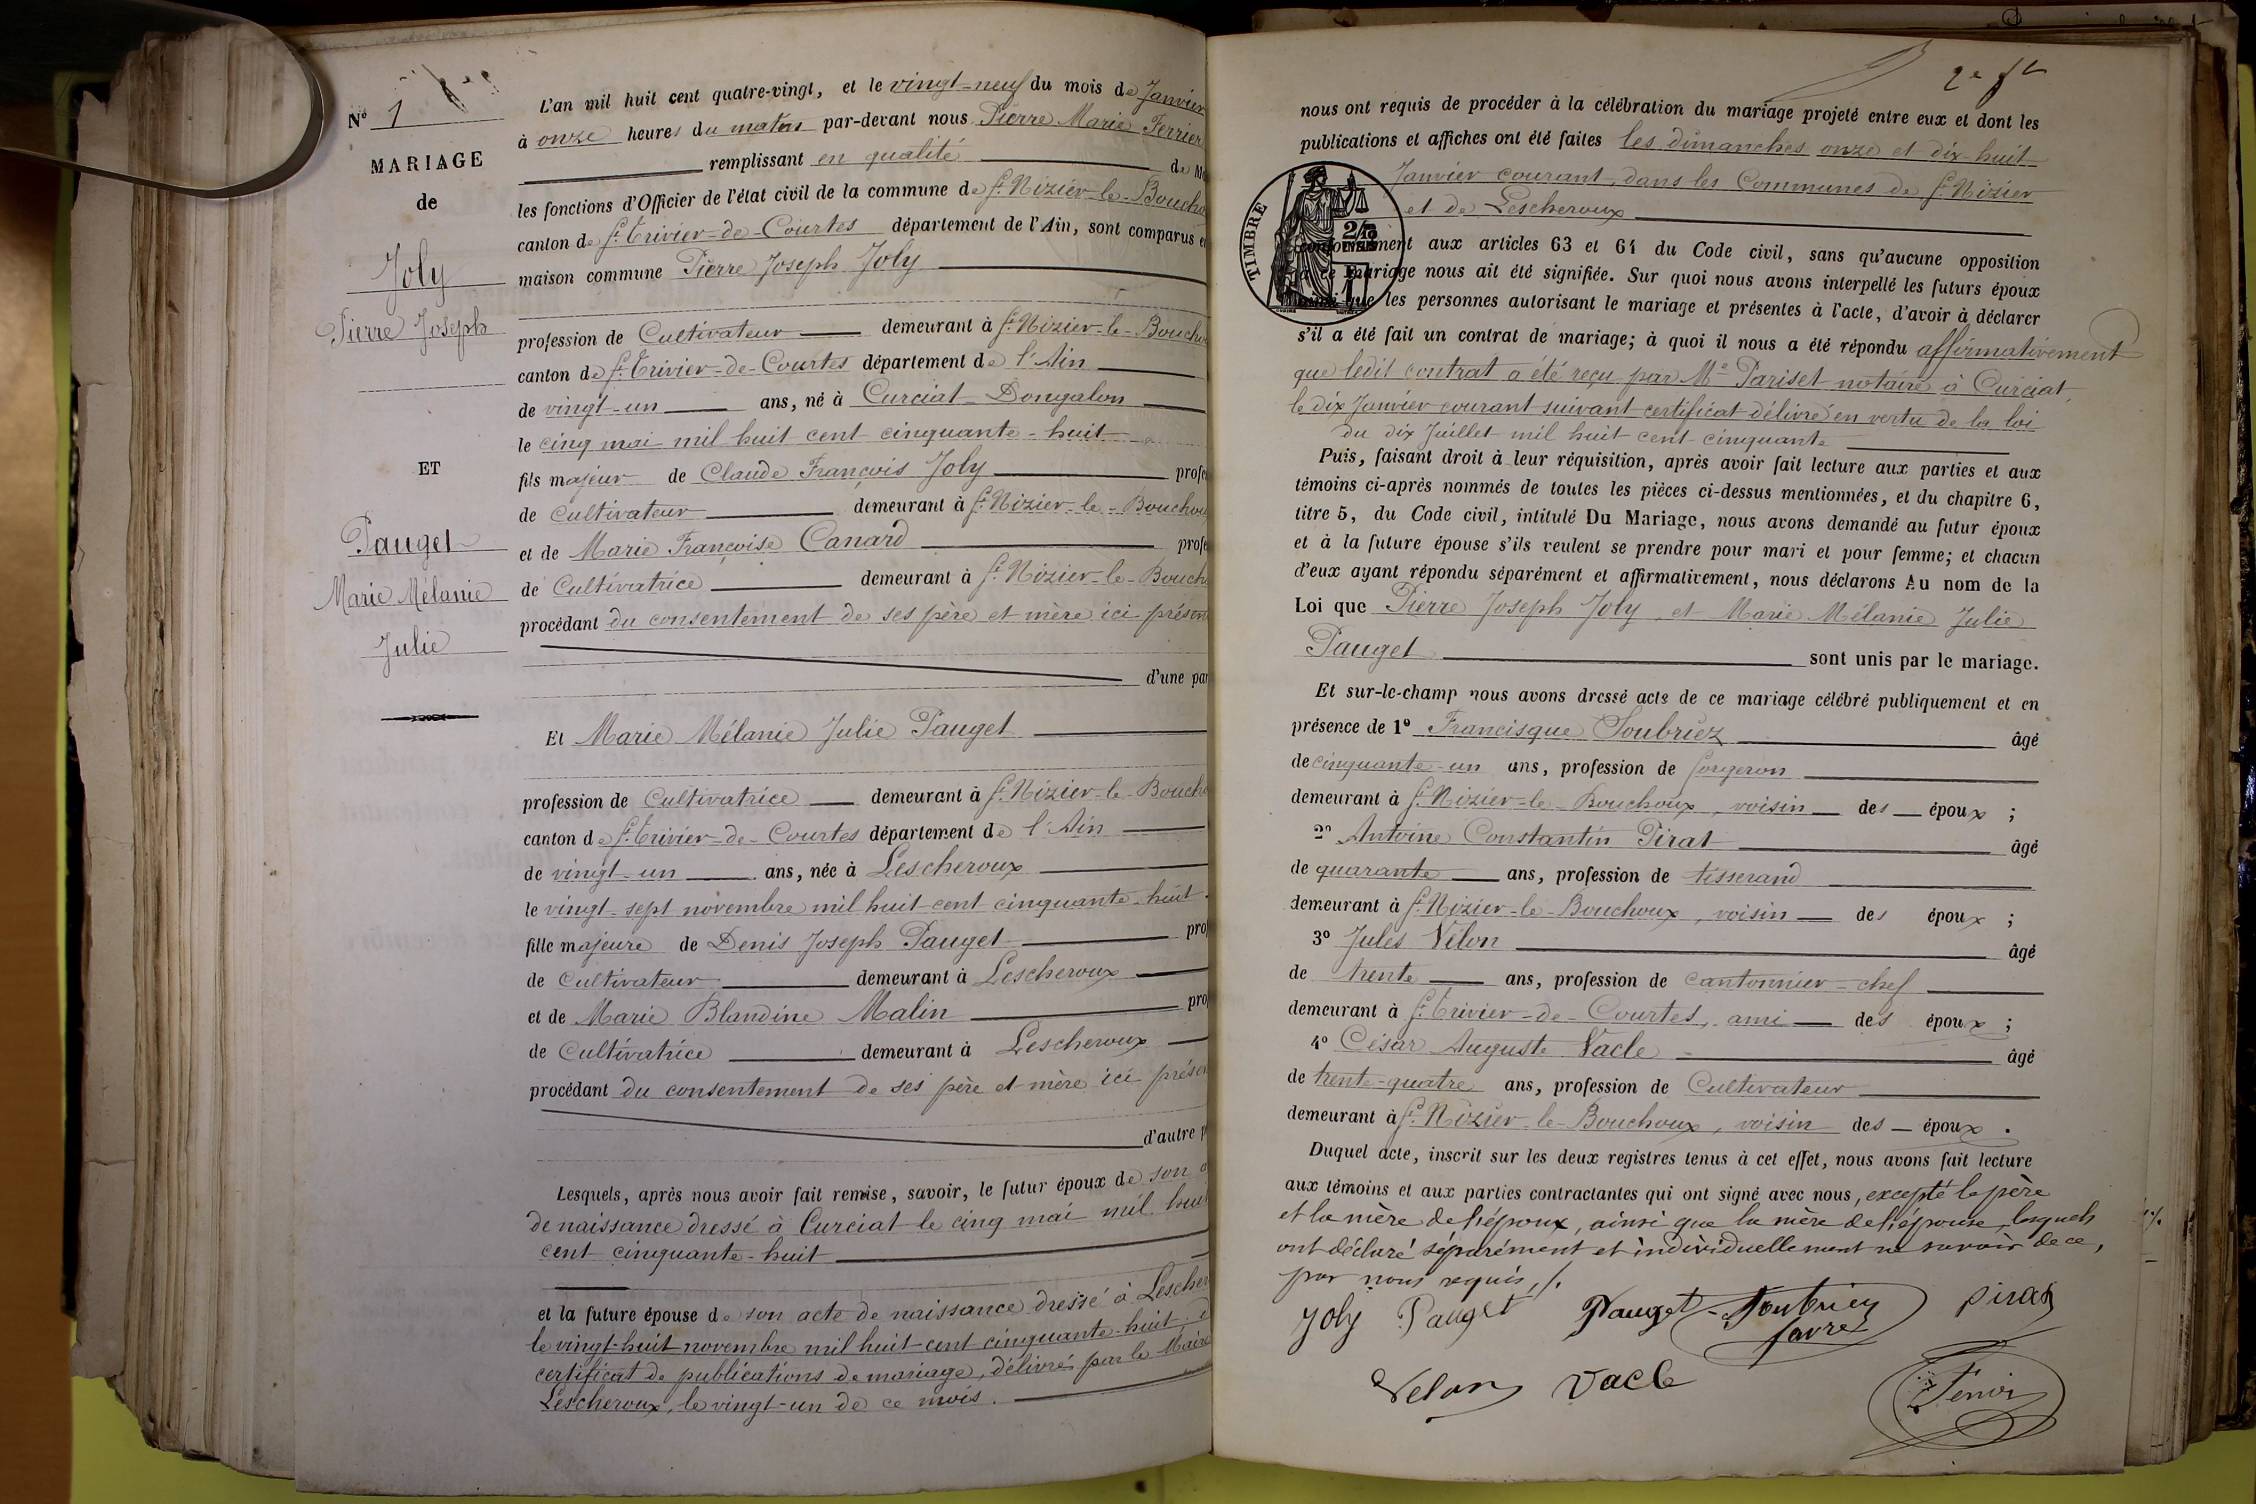 Nº 1
MARIAGE
de
Joly
Pierre Joseph
ET
Pauget
Marie Mélanie
Julie
L'an mil huit cent quatre-vingt, et le vingt-neuf du mois de Janvier
à onze heures du matin par-devant nous Pierre Marie Ferrier
remplissant en qualité de M
les fonctions d'Officier de l'état civil de la commune de St Nizier-le-Boucho
canton de St Trivier-de-Courtes département de l'Ain, sont comparus e
maison commune Pierre Joseph Joly
profession de Cultivateur demeurant à St Nizier-le-Boucho
canton de St Trivier-de-Courtes département de l'Ain
de vingt-un ans, né à Curciat-Dongalon
le cinq mai mil huit cent cinquante-huit
fils majeur de Claude François Joly profe
de Cultivateur demeurant à St Nizier-le-Bouchou
et de Marie Françoise Canard profe
de Cultivatrice demeurant à St Nizier-le-Bouch
procédant du consentement de ses père et mère ici présen
d'une par
Et Marie Mélanie Julie Pauget
profession de Cultivatrice demeurant à St Nizier-le-Boucho
canton de St Trivier-de-Courtes département de l'Ain
de vingt-un ans, née à Lescheroux
le vingt-sept novembre mil huit cent cinquante-huit
fille majeure de Denis Joseph Pauget pro
de Cultivateur demeurant à Lescheroux
et de Marie Blandine Malin pro
de Cultivatrice demeurant à Lescheroux
procédant du consentement de ses père et mère ici présen
d'autre p
Lesquels, après nous avoir fait remise, savoir, le futur époux de son a
de naissance dressé à Curciat le cinq mai mil huit
cent cinquante-huit
et la future épouse de son acte de naissance dressé à Lescher
le vingt-huit novembre mil huit cent cinquante-huit, d
certificat de publications de mariage, délivré par le Maire
Lescheroux, le vingt-un de ce mois.
2e ft
nous ont requis de procéder à la célébration du mariage projeté entre eux et dont les
publications et affiches ont été faites les dimanches onze et dix-huit
Janvier courant, dans les Communes de St Nizier
et de Lescheroux
TIMBRE
conformément aux articles 63 et 64 du Code civil, sans qu'aucune opposition
à ce mariage nous ait été signifiée. Sur quoi nous avons interpellé les futurs époux
ainsi que les personnes autorisant le mariage et présentes à l'acte, d'avoir à déclarer
s'il a été fait un contrat de mariage; à quoi il nous a été répondu affirmativement
que ledit contrat a été reçu par Me Pariset notaire à Curciat,
le dix Janvier courant suivant certificat délivré en vertu de la loi
du dix Juillet mil huit cent cinquante
Puis, faisant droit à leur réquisition, après avoir fait lecture aux parties et aux
témoins ci-après nommés de toutes les pièces ci-dessus mentionnées, et du chapitre 6,
titre 5, du Code civil, intitulé Du Mariage, nous avons demandé au futur époux
et à la future épouse s'ils veulent se prendre pour mari et pour femme; et chacun
d'eux ayant répondu séparément et affirmativement, nous déclarons Au nom de la
Loi que Pierre Joseph Joly et Marie Mélanie Julie
Pauget sont unis par le mariage.
Et sur-le-champ nous avons dressé acte de ce mariage célébré publiquement et en
présence de 1º Francisque Soubriez âgé
de cinquante-un ans, profession de forgeron
demeurant à St Nizier-le-Bouchoux, voisin des époux ;
2º Antoine Constantin Pirat âgé
de quarante ans, profession de tisserand
demeurant à St Nizier-le-Bouchoux, voisin des époux ;
3º Jules Vélon âgé
de trente ans, profession de cantonnier-chef
demeurant à St Trivier-de-Courtes, ami des époux ;
4º César Auguste Vacle âgé
de trente-quatre ans, profession de Cultivateur
demeurant à St Nizier-le-Bouchoux, voisin des époux.
Duquel acte, inscrit sur les deux registres tenus à cet effet, nous avons fait lecture
aux témoins et aux parties contractantes qui ont signé avec nous, excepté le père
et la mère de l'époux, ainsi que la mère de l'épouse, lesquels
ont déclaré séparément et individuellement ne savoir de ce,
par nous requis, /.
Joly Pauget Pauget Soubriez Pirat
favre
Velon Vacle